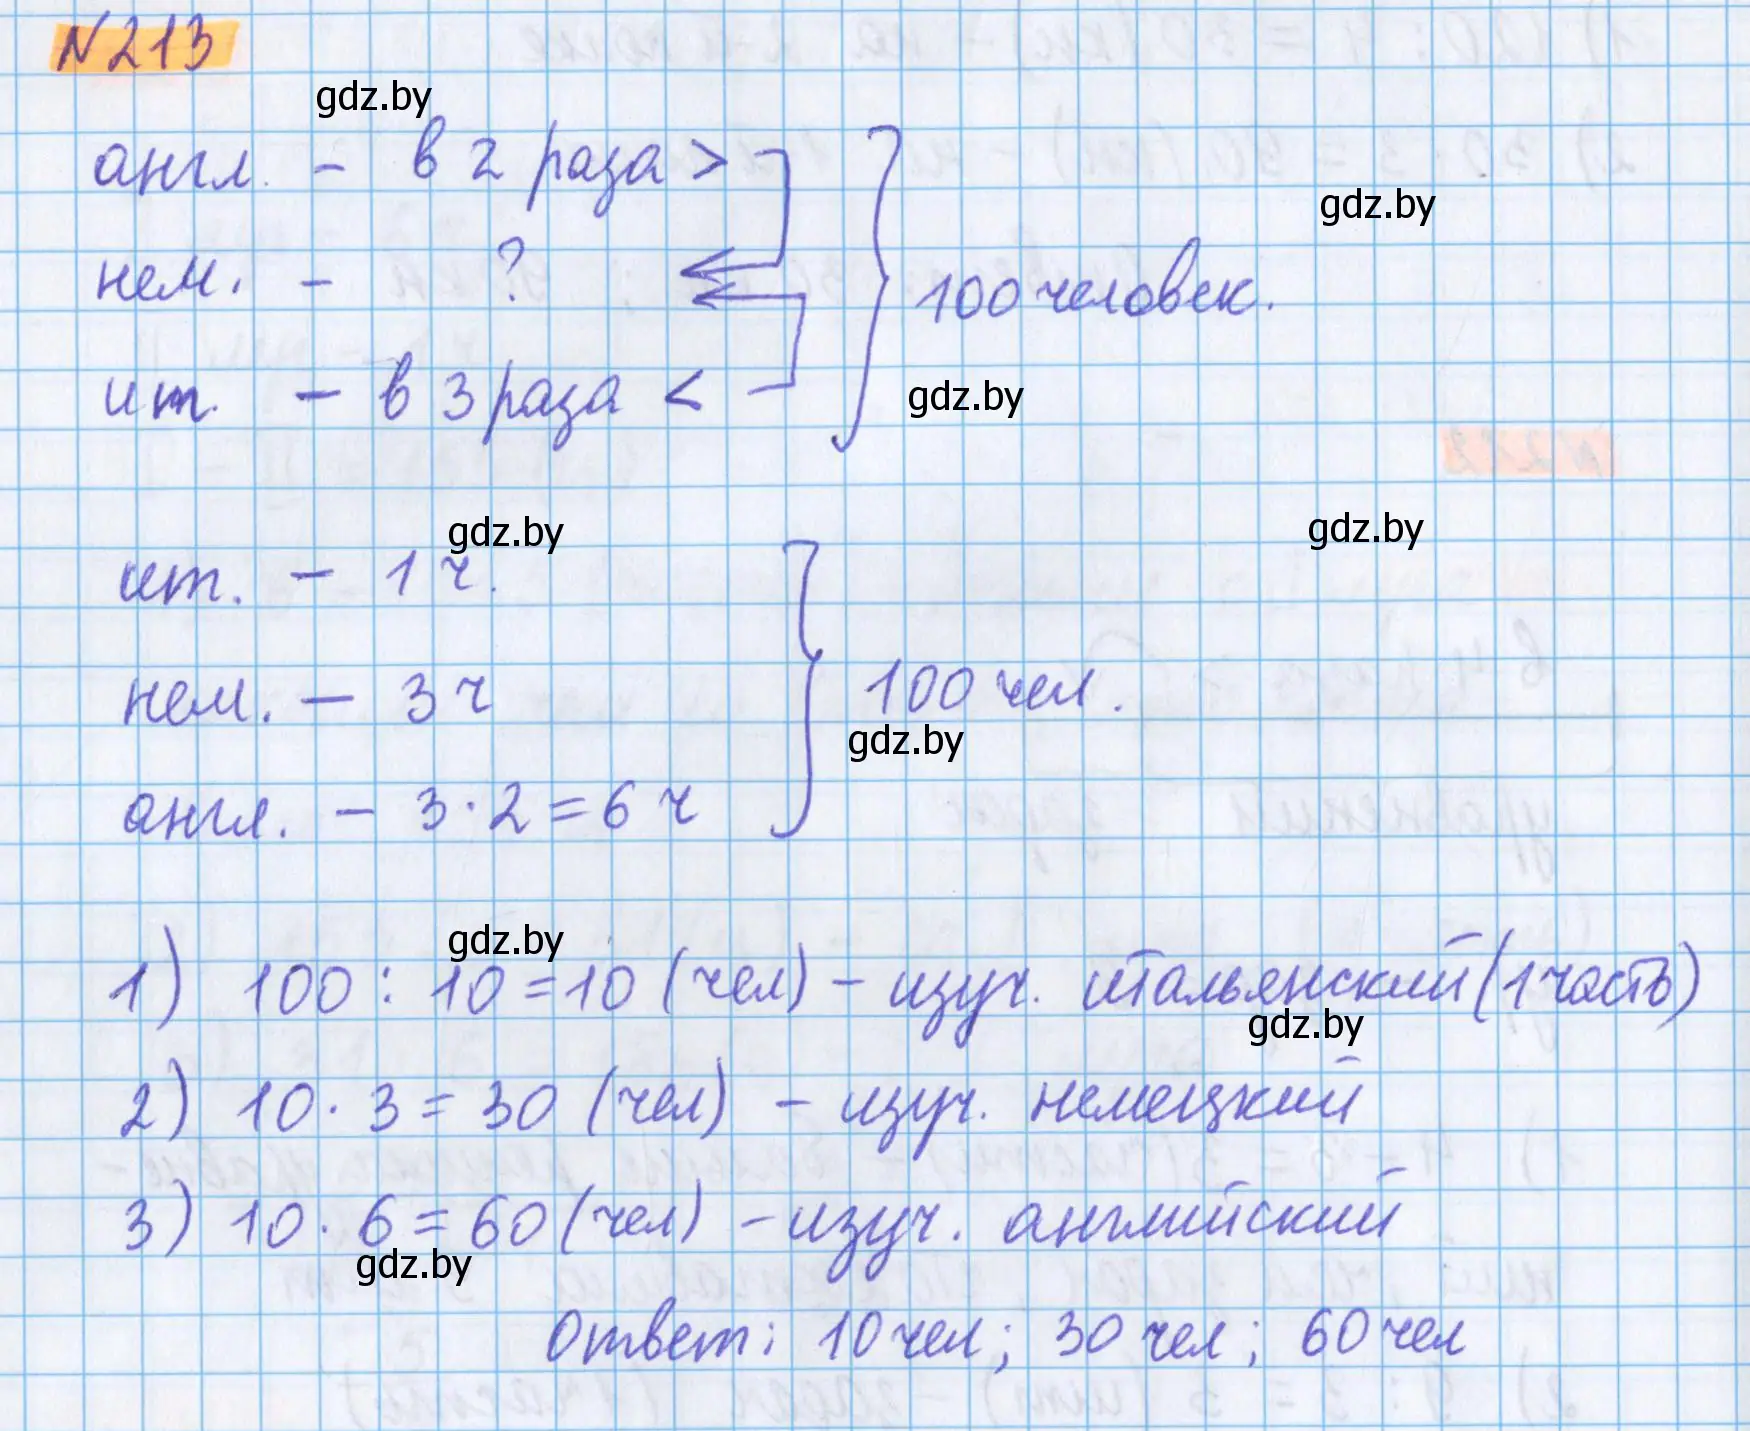 N213
gdz.by
англ. - в 2 раза >
gdz.by
нем. - ?
100 человек.
ит. - в 3 раза <
gdz.by
gdz.by
gdz.by
ит. - 1 ч.
нем. - 3 ч
100 чел.
gdz.by
англ. - 3 · 2 = 6 ч
gdz.by
1) 100 : 10 = 10 (чел) - изуч. итальянский (1 часть)
gdz.by
2) 10 · 3 = 30 (чел) - изуч. немецкий
3) 10 · 6 = 60 (чел) - изуч. английский
gdz.by
Ответ: 10 чел; 30 чел; 60 чел